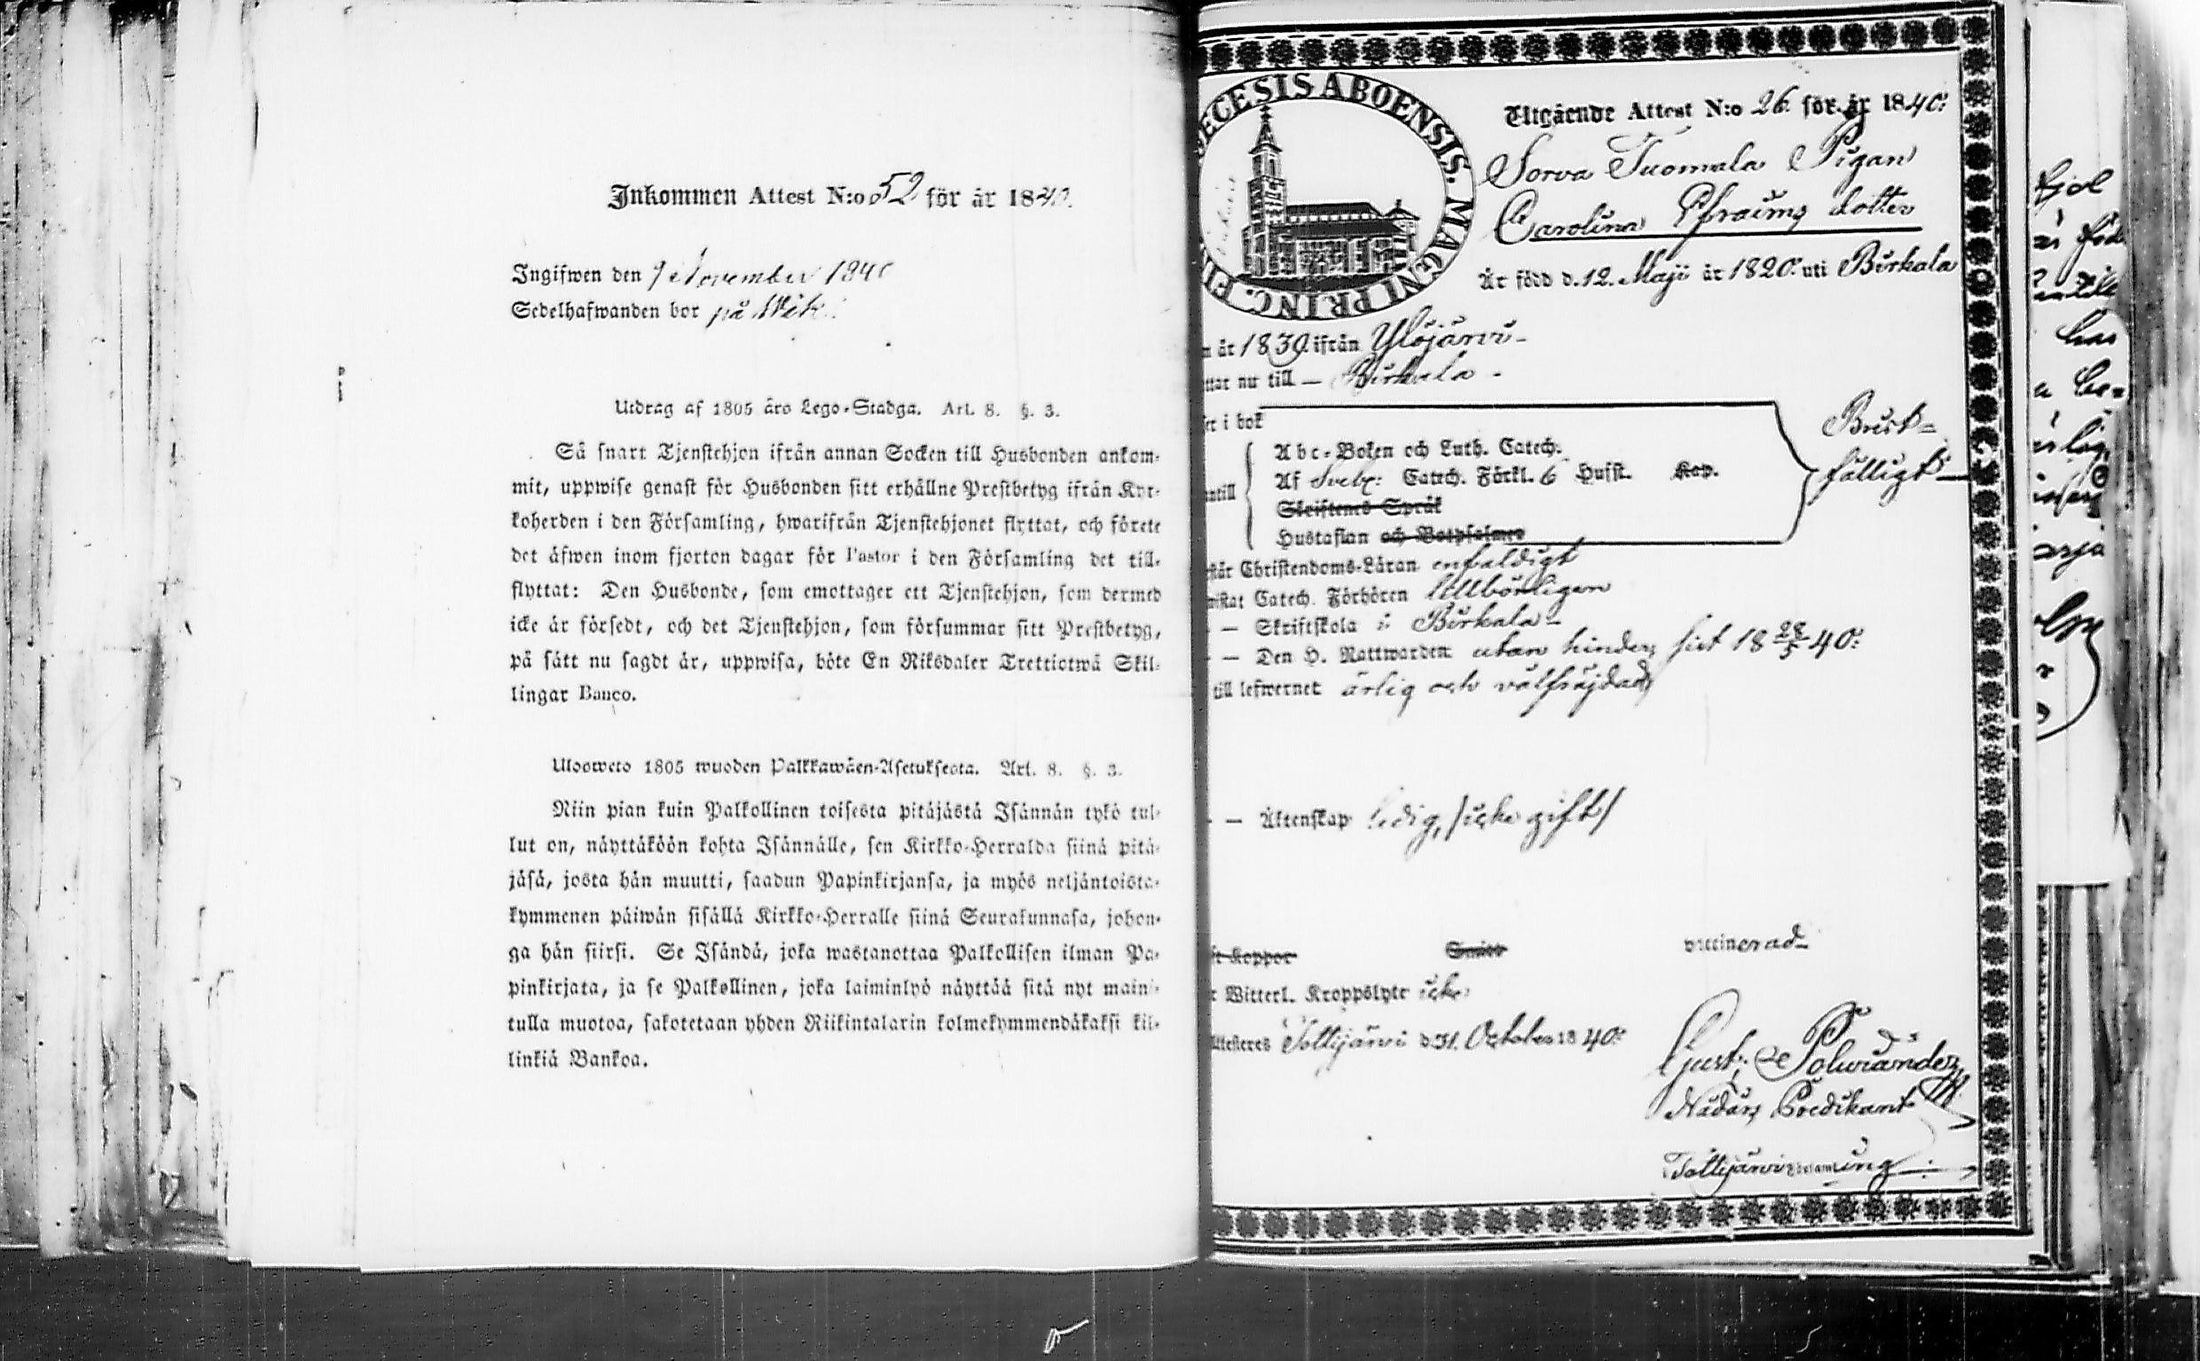 Inkommen Attest N:o 52 för år 1840.
Ingifwen den 9 November 1840
Sedelhafwanden bor på Wik.
Utdrag af 1805 års Lego-Stadga. Art. 8. §. 3.
Så snart Tjenstehjon ifrån annan Socken till Husbonden ankom-
mit, uppwise genast för Husbonden sitt erhållne Prestbetyg ifrån Kyr-
koherden i den Församling, hwarifrån Tjenstehjonet flyttat, och förete
det äfwen inom fjorton dagar för Pastor i den Församling det till-
flyttat: Den Husbonde, som emottager ett Tjenstehjon, som dermed
icke är försedt, och det Tjenstehjon, som försummar sitt Prestbetyg,
på sätt nu sagdt är, uppwisa, böte En Riksdaler Trettiotwå Skil-
lingar Banco.
Ulosweto 1805 wuoden Palkkawäen-Asetuksesta. Art. 8. §. 3.
Niin pian kuin Palkollinen toisesta pitäjästä Isännän tykö tul-
lut on, näyttäköön kohta Isännälle, sen Kirkko-Herralda siinä pitä-
jäsä, josta hän muutti, saadun Papinkirjansa, ja myös neljäntoista-
kymmenen päiwän sisällä Kirkko-Herralle siinä Seurakunnasa, johon-
ga hän siirsi. Se Isändä, joka wastanottaa Palkollisen ilman Pa-
pinkirjata, ja se Palkollinen, joka laiminlyö näyttää sitä nyt maini-
tulla muotoa, sakotetaan yhden Riikintalarin kolmekymmendäkaksi kil-
linkiä Bankoa.
ECESIS ABOENSIS. MAGNI PRINC. FIN
Utgående Attest N:o 26. för år 1840.
Sorva Tuomala Pigan
Carolina Efraims dotter
Är född d. 12. Maji år 1820. uti Birkala
n år 1839. ifrån Ylöjärvi
ttar nu till — Birkala -
er i bok
Abc-Boken och Luth. Catech.
Af Sveb: Catech. Förkl. 6 Hufst. Kap.
Skriftenes Språk
Hustaflan och Botpsalmer
Brist=
fälligt
står Christendoms-Läran enfaldigt
wistat Catech. Förhören tillbörligen
— Skriftskola i Birkala
— Den H. Nattwarden utan hinder, sist 18 28/5 40.
till lefwernet ärlig och välfräjdad
— Äktenskap ledig, /icke gift/
ft Koppor Smitt vaccinerad
r Witterl. Kroppslyte icke
Attesteres Tottijärvi d. 31. October 1840.
Gust: Polviander
Nådårs Predikant
Tottijärvi Församling